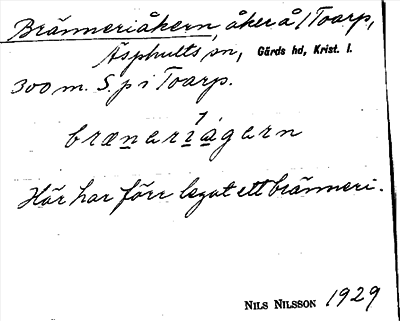 Bränneriåkern, åker å 1 Toarp,
Äsphults sn, Gärds hd, Krist. l.
300 m. S. p i Toarp.
brænariågarn
Här har förr legat ett bränneri.
NILS NILSSON 1929